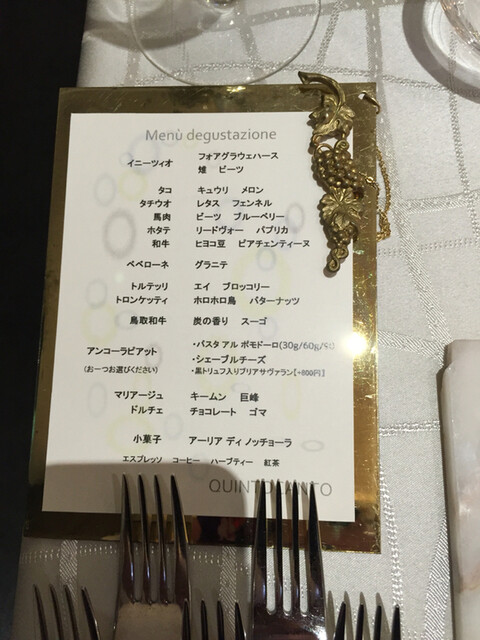 Menù degustazione
イニーツィオ フォアグラウェハース
雉 ビーツ
タコ キュウリ メロン
タチウオ レタス フェンネル
馬肉 ビーツ ブルーベリー
ホタテ リードヴォー パプリカ
和牛 ヒヨコ豆 ピアチェンティーヌ
ペペローネ グラニテ
トルテッリ エイ ブロッコリー
トロンケッティ ホロホロ鳥 バターナッツ
鳥取和牛 炭の香り スーゴ
アンコーラピアット ・パスタ アル ポモドーロ(30g/60g/
(お一つお選びください) ・シェーブルチーズ
・黒トリュフ入りブリアサヴァラン【+800円】
マリアージュ キームン 巨峰
ドルチェ チョコレート ゴマ
小菓子 アーリア ディ ノッチョーラ
エスプレッソ コーヒー ハーブティー 紅茶
QUINTOCANTO